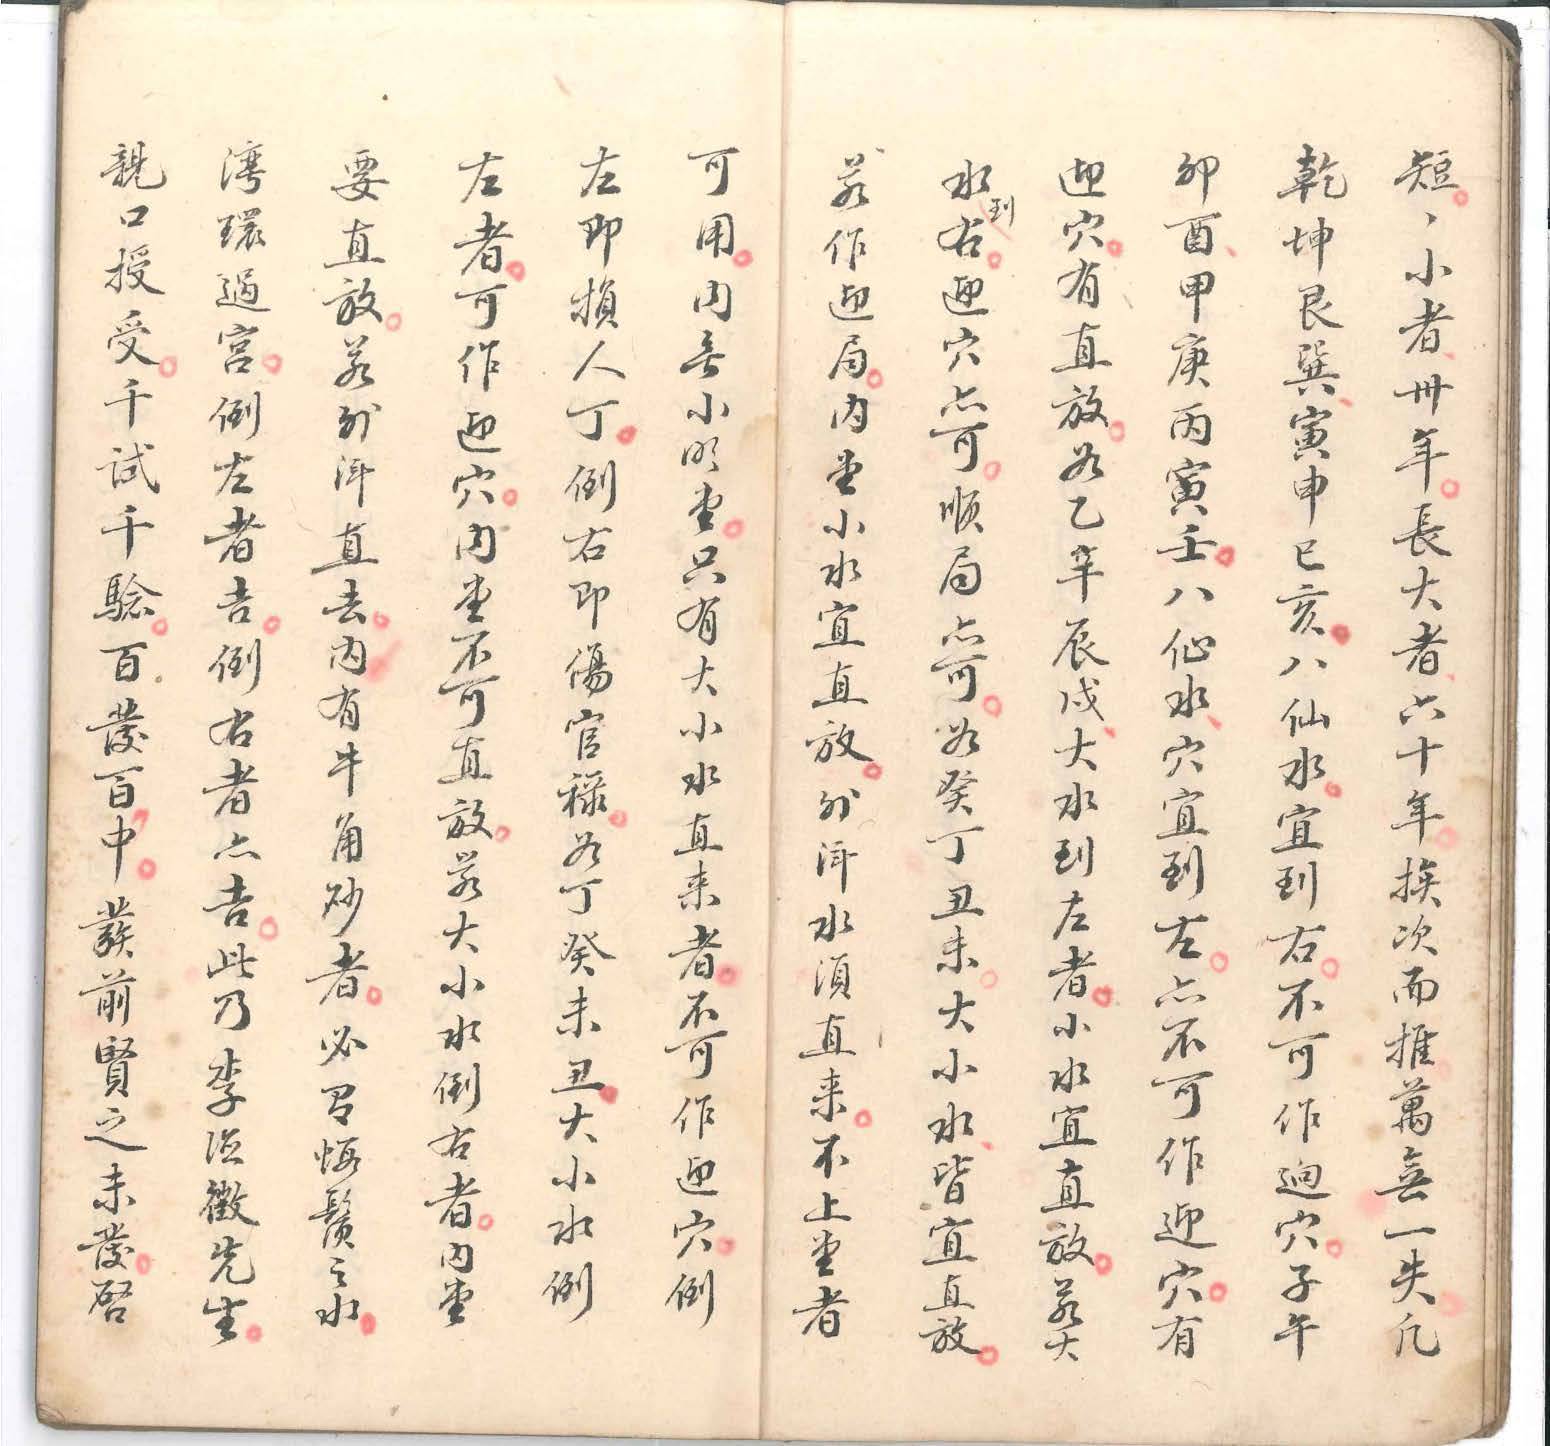 短、小者卅年長大者六十年挨次而推萬無一失凡
乾坤艮巽寅申巳亥八仙水宜到右不可作迎穴子午
卯酉甲庚丙寅壬八仙水穴宜到左亦不可作迎穴有
迎穴有直放如乙辛辰戌大水到左者小水宜直放若大
水到右迎穴亦可順局亦可如癸丁丑未大小水皆宜直放
若作迎局內堂小水宜直放外洋水須直来不上堂者
可用內無小明堂只有大小水直来者不可作迎穴倒
左即損人丁倒右即傷官祿如丁癸未丑大小水倒
左者可作迎穴內堂不可直放若大小水倒右者內堂
要直放若外洋直去內有牛角砂者必有蝦鬚之水
湾環過宮倒左者吉倒右者亦吉此乃李徴先生
親口授受千試千驗百發百中發前賢之未發啓